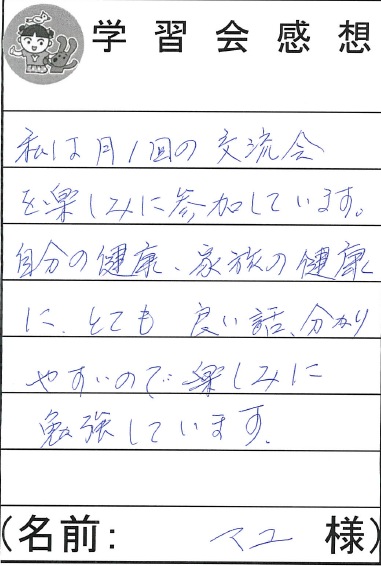 学習会感想
私は月1回の交流会
を楽しみに参加しています。
自分の健康、家族の健康
に、とても 良い話、分かり
やすいので楽しみに
勉強しています。
(名前: マユ 様)